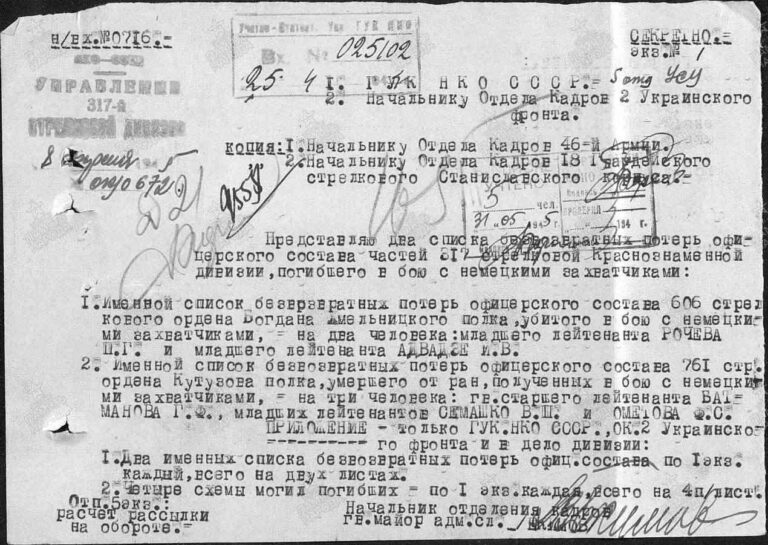 н/вх.№0716.-
Вх. №
025102
25 4
СЕКРЕТНО.-
экз.№ 1
УПРАВЛЕНИЕ
317-й
СТРЕЛКОВОЙ ДИВИЗИИ
8 апреля 5
0672
1. ГУК НКО СССР.- 5 отд УСУ
2. Начальнику Отдела Кадров 2 Украинского
фронта.
КОПИЯ:1.Начальнику Отдела Кадров 46-й Армии.
2.Начальнику Отдела Кадров 18 Гвардейского
стрелкового Станиславского корпуса.-
УЧТЕНО
5 чел.
31 05 1945 г.
194 г.
Представляю два списка безвозвратных потерь офи-
церского состава частей 317 стрелковой Краснознаменной
дивизии,погибшего в бою с немецкими захватчиками:
1.Именной список безвозвратных потерь офицерского состава 606 стрел
кового ордена Богдана Хмельницкого полка,убитого в бою с немецки-
ми захватчиками, - на два человека:младшего лейтенанта РОЧЕВА
П.Г. и младшего лейтенанта АДВАДЗЕ И.В.
2. Именной список безвозвратных потерь офицерского состава 761 стр.
ордена Кутузова полка,умершего от ран,полученных в бою с немецки-
ми захватчиками, - на три человека: гв.старшего лейтенанта БАТ-
МАНОВА Г.Ф., младших лейтенантов СЕМАШКО В.Ш. и ОМЕТОВА Ф.С.
ПРИЛОЖЕНИЕ - только ГУК.НКО СССР.,ОК.2 Украинско-
го фронта и в дело дивизии:
1.Два именных списка безвозвратных потерь офиц.состава по 1экз.
каждый,всего на двух листах.
2.Четыре схемы могил погибших - по 1 экз.каждая,всего на 4п/лист.
Отп.5экз.:
расчет рассылки
на обороте.-
Начальник отделения кадров
гв.майор адм.сл.